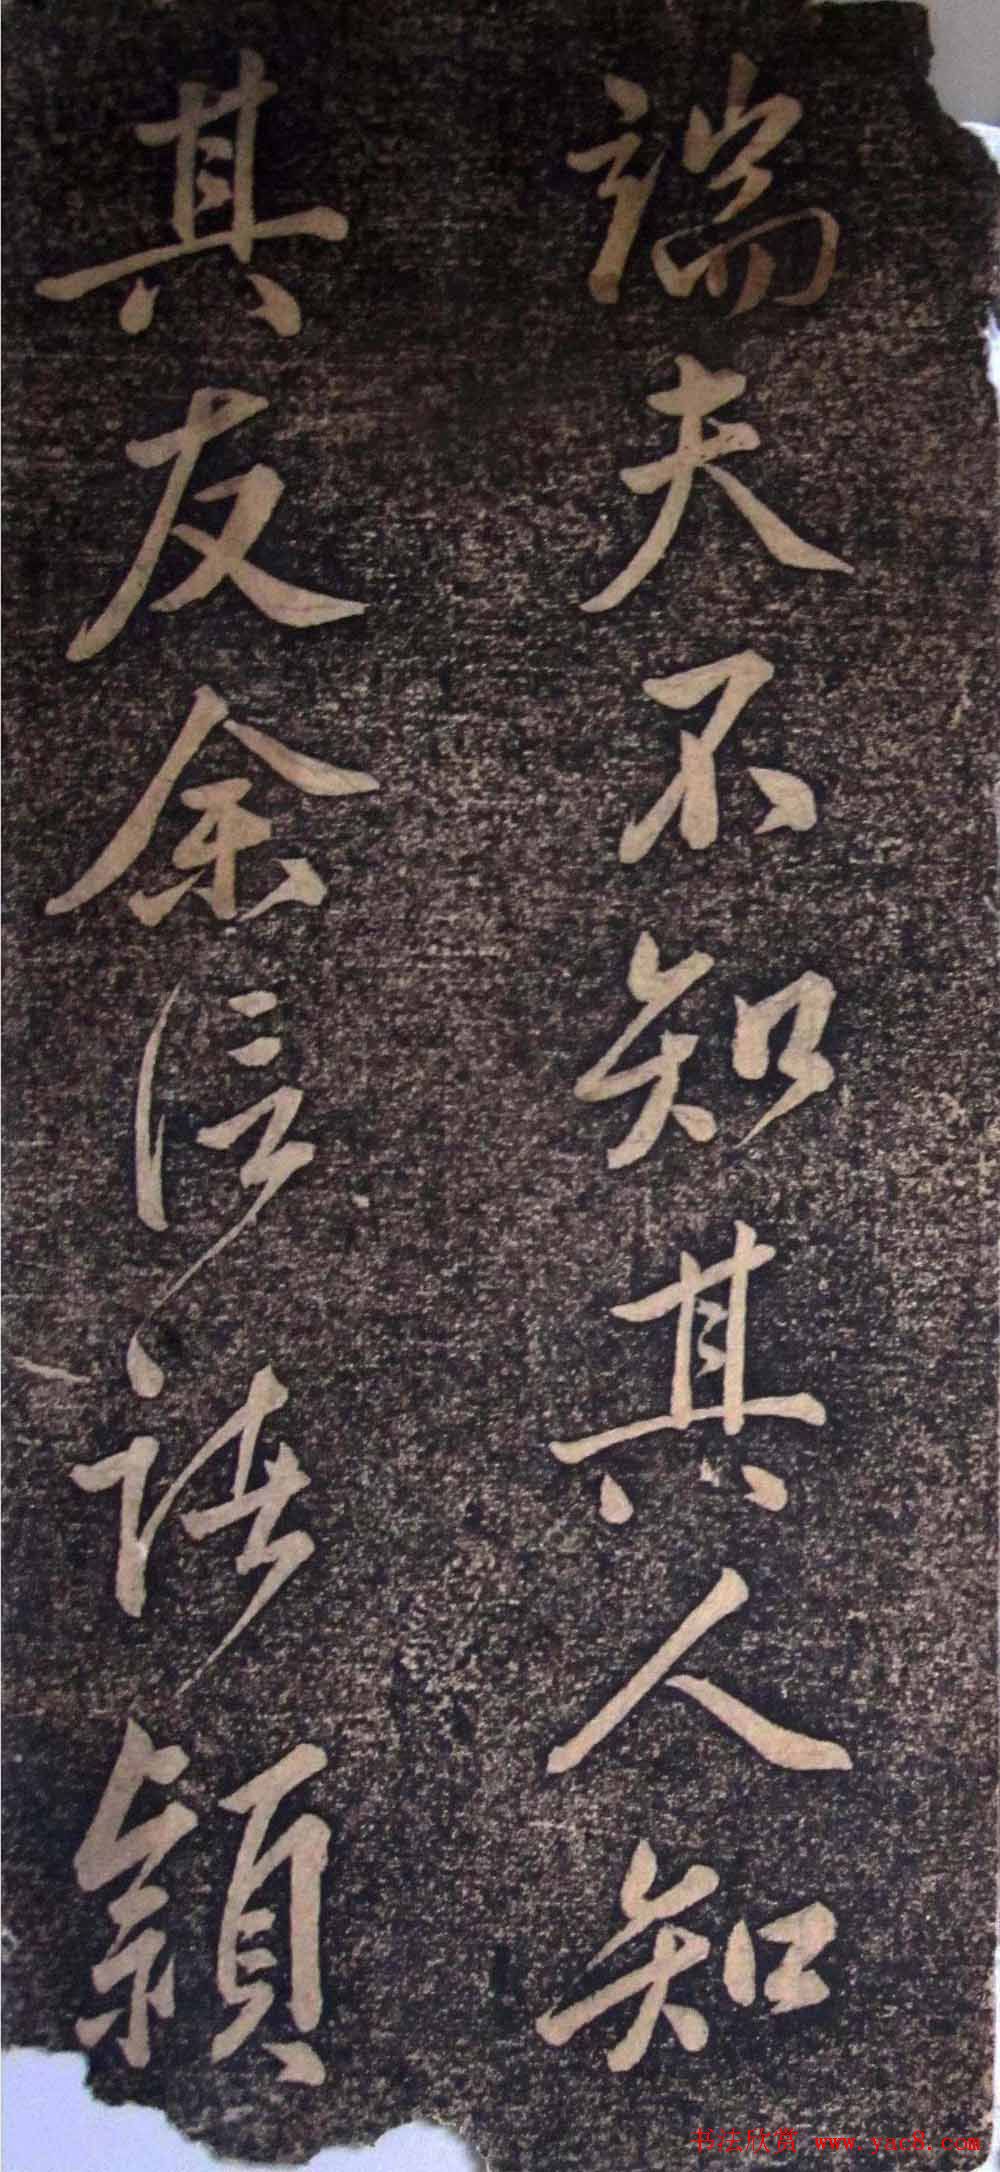 端夫不知其人知
其友余信诗颖
书法欣赏 www.yac8.com